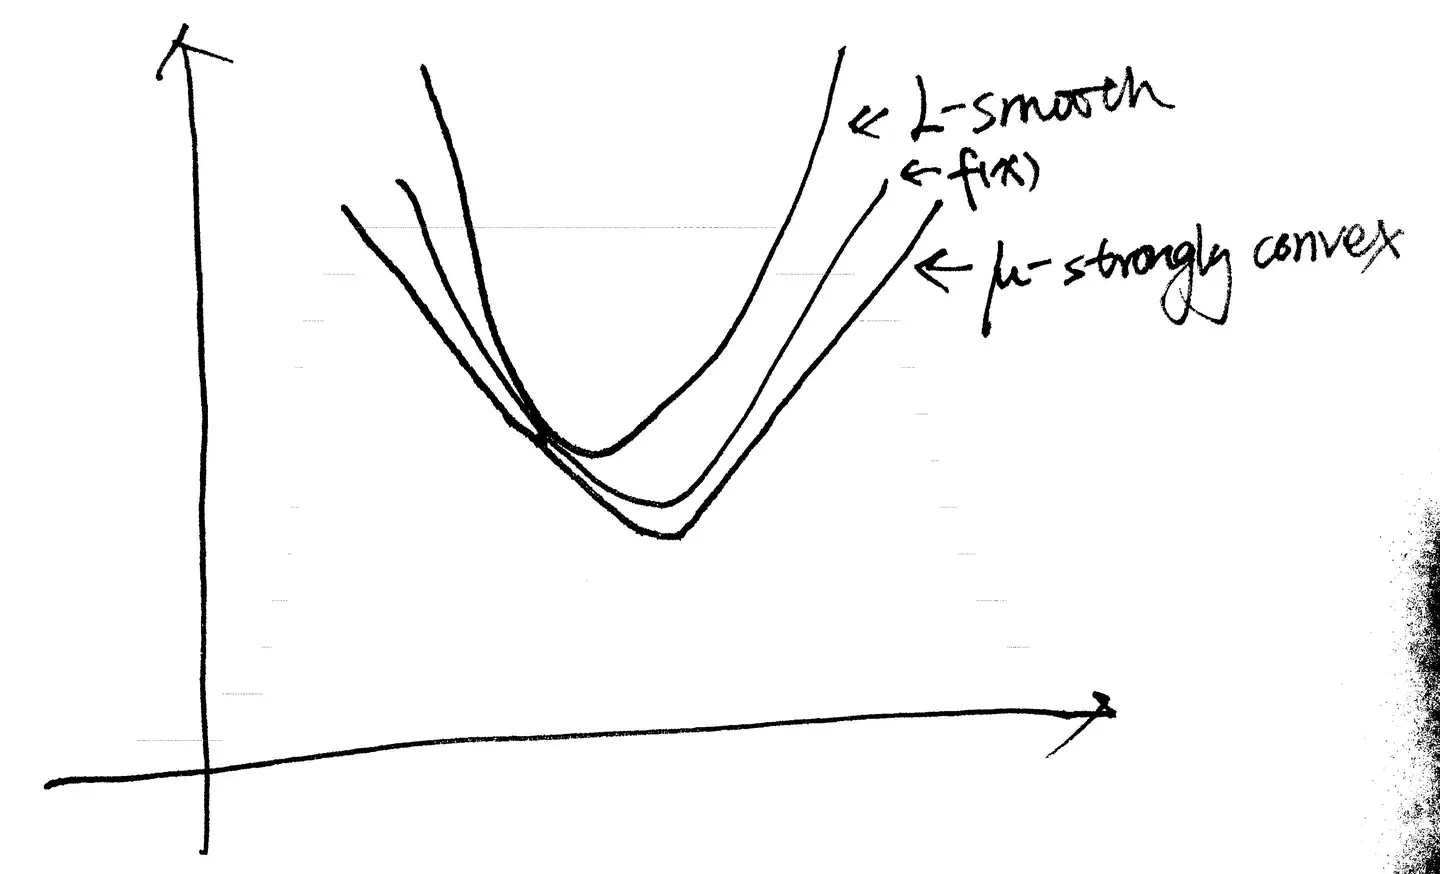 L-smooth
f(x)
μ-strongly convex